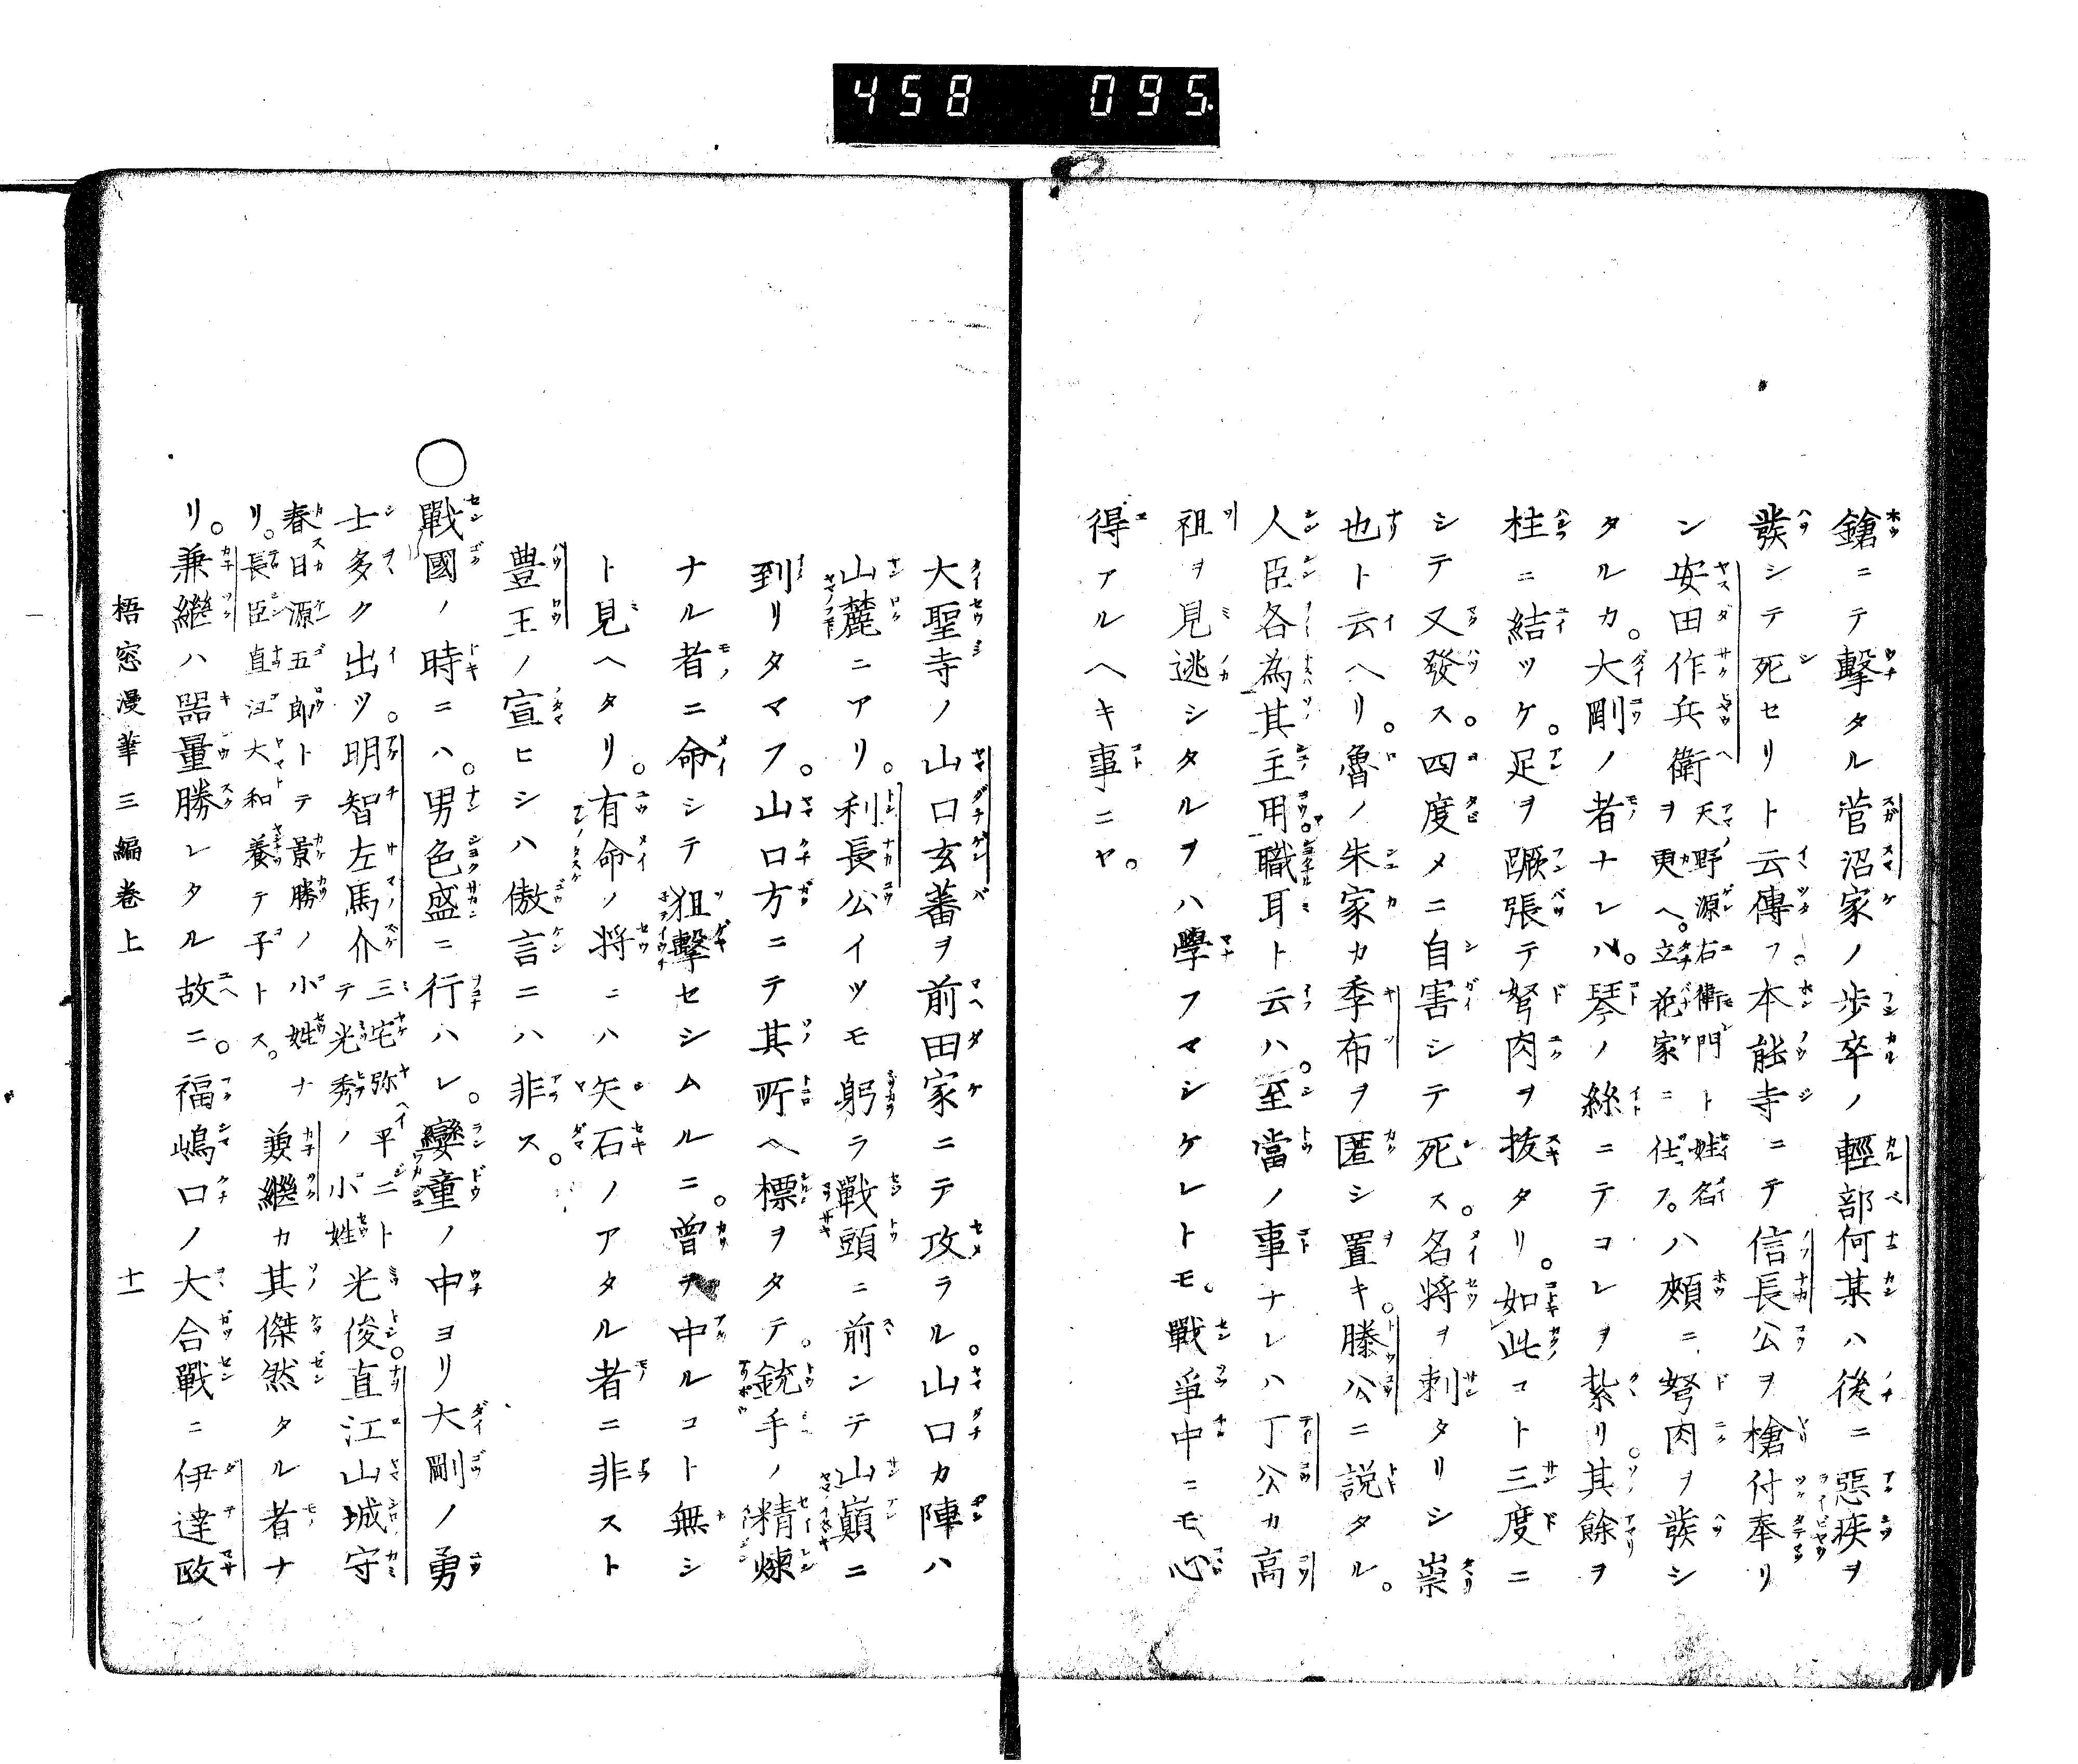 458 095.
鎗ニテ擊タル菅沼家ノ歩卒ノ輕部何某ハ後ニ惡疾ヲ
發シテ死セリト云傳フ。本能寺ニテ信長公ヲ槍付奉リ
ン安田作兵衛ヲ更ヘ。天野源右衛門ト姓名立花家ニ仕フ。ハ頰ニ弩肉ヲ發シ
タルカ。大剛ノ者ナレハ。琴ノ絲ニテコレヲ紮リ。其餘ヲ
柱ニ結ツケ。足ヲ蹶張テ弩肉ヲ拔タリ。如此コト三度ニ
シテ又發ス。四度メニ自害シテ死ス。名将ヲ刺タリシ崇
也ト云ヘリ。魯ノ朱家カ季布ヲ匿シ置キ。滕公ニ説タル。
人臣各為其主用職耳ト云ハ。至當ノ事ナレハ丁公カ高
祖ヲ見逃シタルヲハ學フマシケレトモ。戰爭中ニモ心
得アルヘキ事ニヤ。
大聖寺ノ山口玄蕃ヲ前田家ニテ攻ラル。山口カ陣ハ
山麓ニアリ。利長公イツモ躬ラ戰頭ニ前ンテ山巓ニ
到リタマフ。山口方ニテ其所ヘ標ヲタテ。銃手ノ精煉
ナル者ニ命シテ狙擊セシムルニ。曾テ中ルコト無シ
ト見ヘタリ。有命ノ将ニハ矢石ノアタル者ニ非スト
豊王ノ宣ヒシハ傲言ニハ非ス。
○戰國ノ時ニハ。男色盛ニ行ハレ。孌童ノ中ヨリ大剛ノ勇
士多ク出ツ。明智左馬介三宅弥平ニトテ光秀ノ小姓光俊。直江山城守
春日源五郎トテ景勝ノ小姓ナリ。長臣直江大和養テ子トス。兼繼カ其傑然タル者ナ
リ。兼繼ハ器量勝レタル故ニ。福嶋口ノ大合戰ニ伊達政
梧窓漫筆三編巻上 十一